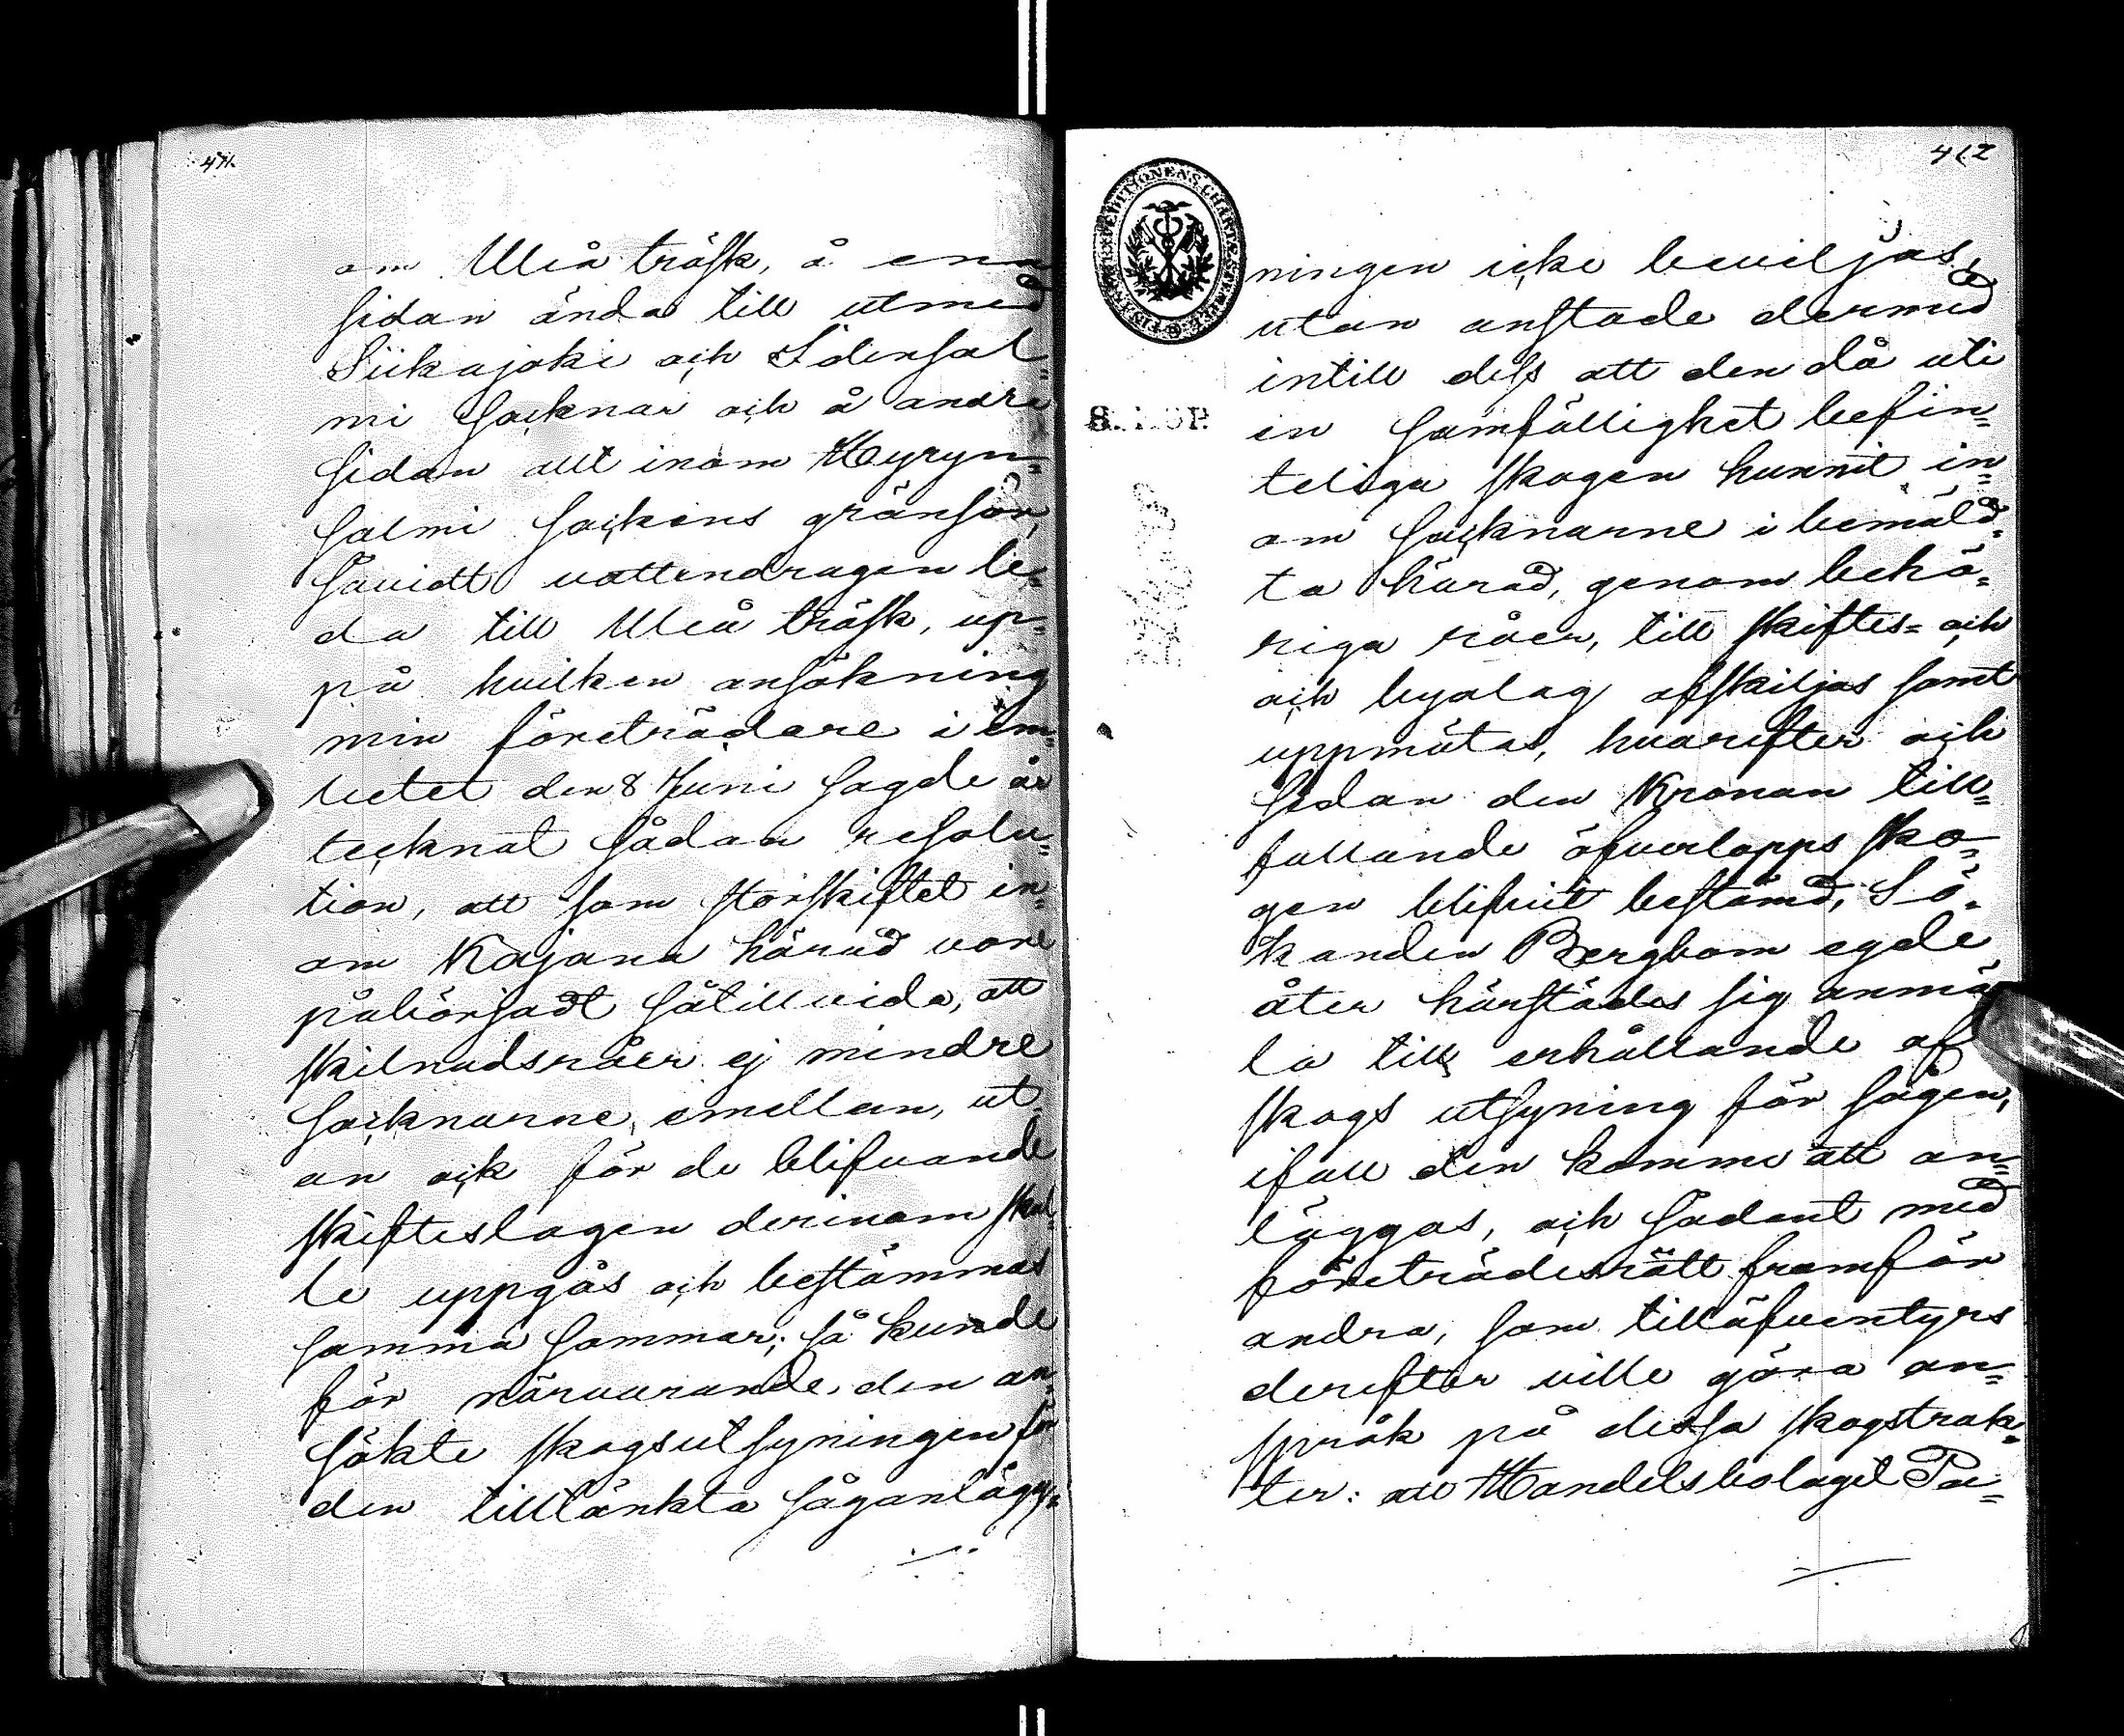 471.
om Uleå träsk, å ena
sidan ända till utmed
Siikajoki och Idensal=
mi Socknar och å andra
sidan allt inom Hyryn=
salmi sockens gränsor,
såvidt vattendragen le=
da till Uleå träsk, up=
på hvilken ansökning
min företrädare i em=
betet den 8 Juni sagde år
tecknat sådan resolu=
tion, att som storskiftet in=
om Kajana härad vore
påbörjadt såtillvida, att
skilnadsråer ej mindre
socknarne emellan, ut=
an ock för de blifvande
skifteslagen derinom skul=
le uppgås och bestämmas
samma sommar; så kunde
för närvarande den an=
sökte skogsutsyningen för
den tilltänkta såganlägg=
412
FINSKA EXPEDITIONENS CHARTÆ
ningen icke beviljas,
utan anstade dermed
intill dess att den då uti
en samfällighet befin=
teliga skogen hunnit in=
om socknarne i bemäld=
ta härad, genom behö=
riga råer, till skiftes= och
och byalag afskiljas samt
uppmätas, hvarefter och
sedan den Kronan till=
fallande öfverlopps sko=
gen blifvit bestämd, Sö=
kanden Bergbom egde
åter härstädes sig anmä
la till erhållande af
skogs utsyning för sågen,
ifall den komme att an=
läggas, och sådant med
företrädesrätt framför
andra, som tilläfventyrs
derefter ville göra an=
språk på dessa skogstrak=
ter: att Handelsbolaget Pa=